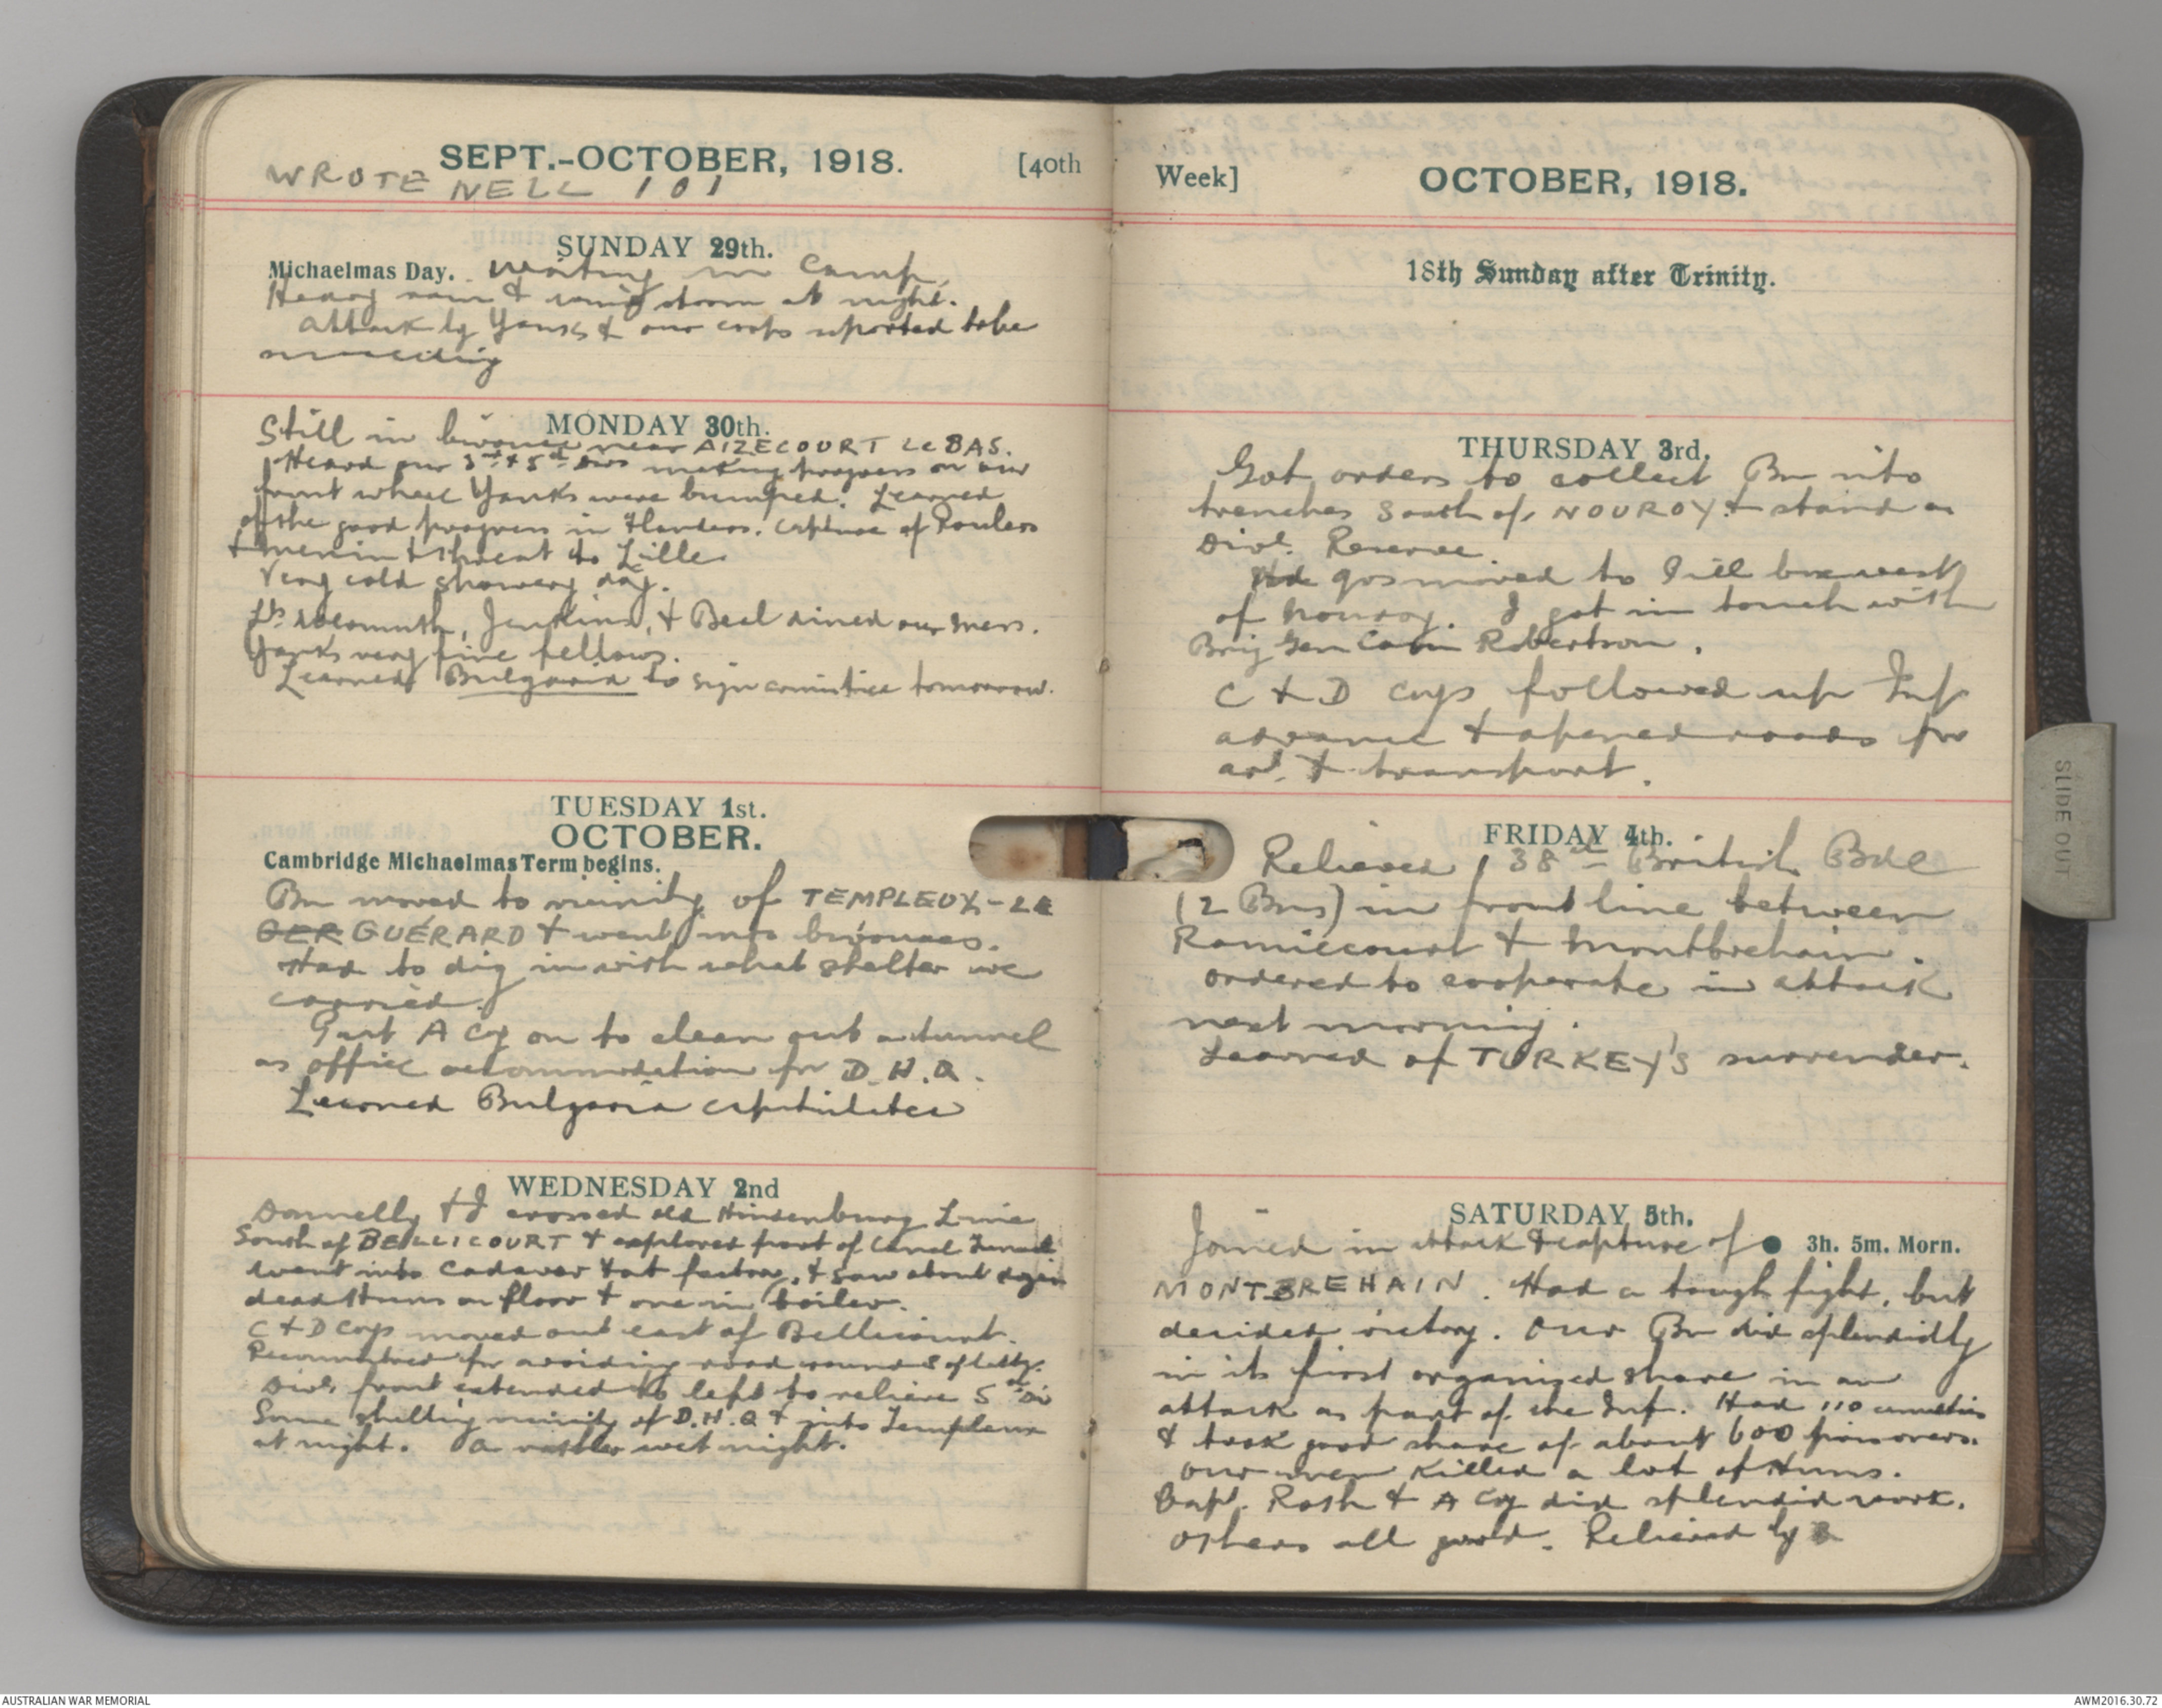 SEPT.-OCTOBER, 1918.
[40th
WROTE NELL 101
SUNDAY 29th.
Michaelmas Day. Waiting in Camp.
Heavy rain & wind storm at night.
Attack by Yanks & our corps reported to be
succeeding
MONDAY 30th.
Still in bivouac near AIZECOURT Le BAS.
Heard our 3rd & 5th Divs making progress on our
front where Yanks were bumped. Learned
of the good progress in Flanders. Capture of Roulers
& Menin & threat to Lille
Very cold showery day.
Lts Jenkins, & Beel dined our mess.
Yanks very fine fellows.
Learned Bulgaria to sign armistice tomorrow.
TUESDAY 1st.
OCTOBER.
Cambridge Michaelmas Term begins.
Bn moved to vicinity of TEMPLEUX-LE
GER GUÉRARD & went into bivouacs.
Had to dig in with what shelter we
carried.
Part A Coy on to clean out a tunnel
as office accommodation for D.H.Q.
Learned Bulgaria capitulates
WEDNESDAY 2nd
Donnelly & I crossed old Hindenburg Line
South of BELLICOURT & explored part of Canal Tunnel
Went into Cadaver & fat factory, & saw about dozen
dead Huns on floor & one in boiler.
C & D Coys moved out east of Bellicourt.
Reconnoitred for avoiding road round S of latter.
Divl front extended to left to relieve 5th Div
Some shelling vicinity of D.H.Q & into Templeux
at night. A rather wet night.
Week]
OCTOBER, 1918.
18th Sunday after Trinity.
THURSDAY 3rd.
Got orders to collect Bn into
trenches South of NOUROY & stand as
Divl. Reserve.
Hd qrs moved to Pill box west
of Nouroy. I got in touch with
Brig Gen Robertson.
C & D coys followed up Inf
advance & opened roads for
art. & transport.
FRIDAY 4th.
Relieved 38th British Bde
(2 Bns) in front line between
Ramicourt & Montbrehain.
Ordered to cooperate in attack
next morning.
Learned of TURKEY'S surrender.
SATURDAY 5th.
Joined in attack & capture of ● 3h. 5m. Morn.
MONTBREHAIN. Had a tough fight, but
decided victory. Our Bn did splendidly
in its first organized share in an
attack as part of the Inf. Had 110 casualties
& took good share of about 600 prisoners.
Our men killed a lot of Huns.
Capt. Rosh & A Coy did splendid work.
Others all good. Relieved by
SLIDE OUT
AUSTRALIAN WAR MEMORIAL
AWM2016.30.72